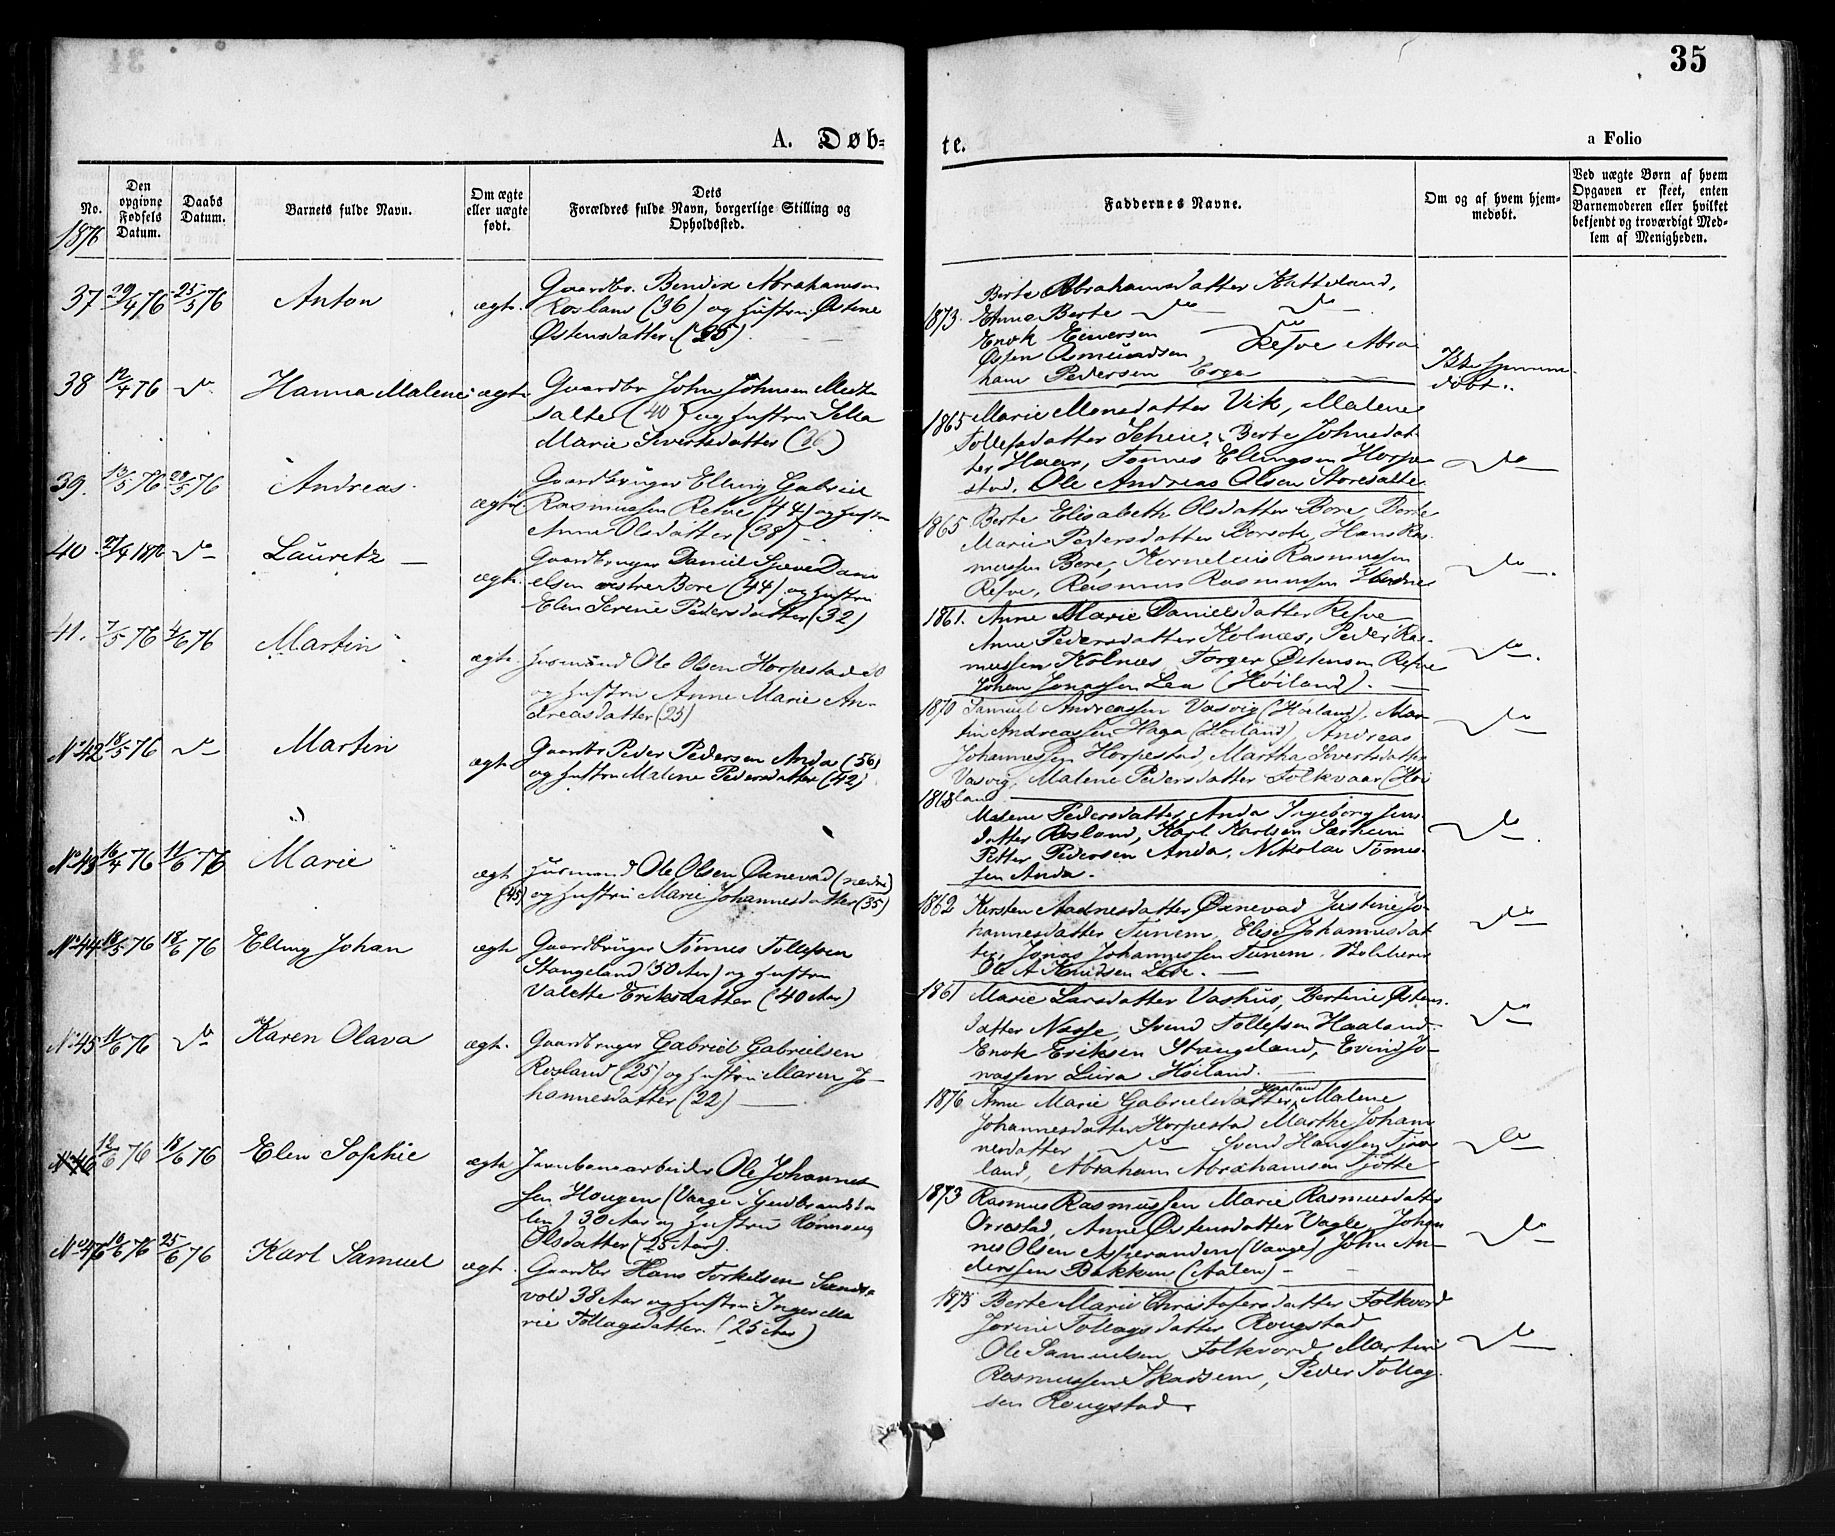 35
A. Døb-
te.
a Folio
No.
Den
opgivne
Fødsels
Datum.
Daabs
Datum.
Barnets fulde Navn.
Om ægte
eller uægte
født.
Dets
Forældres fulde Navn, borgerlige Stilling og
Opholdssted.
Faddernes Navne.
Om og af hvem hjem-
medøbt.
Ved uægte Børn af hvem
Opgaven er skeet, enten
Barnemoderen eller hvilket
bekjendt og troværdigt Med-
lem af Menigheden.
1876
37 29/4 76 25/5 76 Anton ægt.
Gaardbr. Bendix Abrahamsen
Rosland (36) og Hustru Østine
Østensdatter (25)
1873. Berte Abrahamsdatter Katteland,
Anna Berte do do
Enok Einersen do
Østen Asmundsen, Refve Abra
ham Pedersen Erge
Ikke hjemme-
døbt.
38 12/4 76 do Hanna Malene ægt.
Gaardbr John Johnsen Medt
salte (40) og Hustru Silla
Marie Sivertsdatter (36)
1865 Marie Monsdatter Vik, Malene
Tollefsdatter Scheie, Berte Johnsdat
ter Haar, Tønnes Ellingsen Horpe
stad, Ole Andreas Olsen Storesalte
do
39. 13/5 76 28/5 76 Andreas ægt.
Gaardbruger Elling Gabriel
Rasmussen Refve (44) og Hustru
Anna Olsdatter (38)
1865 Berte Elisabeth Olsdatter Bore, Berte
Marie Pedersdatter Borsok, Hans Ras
mussen Bore, Kornelius Rasmussen
Refve, Rasmus Rasmussen
do
40 21/4 1876 do Lauretz ægt.
Gaardbruger Daniel Dani
elsen vestre Bore (44) og Hustru
Elen Serene Pedersdatter (32)
1861. Anne Marie Danielsdatter Refve
Anne Pedersdatter Kolnæs, Peder Ras-
mussen Kolnæs, Torger Østensen Refve
Johan Jonassen Lea (Høiland).
do
41. 7/5 76 4/6 76 Martin ægt.
Husmand Ole Olsen Horpestad 30
og Hustru Anne Marie An-
dreasdatter (25)
1870 Samuel Andreassen Vasvig (Høiland), Mar
tin Andreassen Haga (Høiland), Andreas
Johannessen Horpestad, Martha Sivertsdatter
Vasvig, Malene Pedersdatter Folkvaar (Høi
land
do
No 42 18/5 76 do Martin ægt.
Gaardbr Peder Pedersen Anda (56)
og Hustru Malene Pedersdatter (42)
1868 Malene Pedersdatter Anda Ingeborg Jens
datter Rosland, Karl Karlsen Særheim
Petter Pedersen Anda, Nikolai Tønnes-
sen Anda.
do
No 43 16/4 76 11/6 76 Marie ægt.
Husmand Ole Olsen Øxnevad (nedre)
(45) og Hustru Marie Johannesdatter (35)
1862 Kirsten Aadnesdatter Øxnevad Justine Jo
hannesdatter Tunem, Elise Johannesdat
ter, Jonas Johannessen Tunem.
Ole A Knudsen Lode.
do
No 44 18/5 76 18/6 76 Elling Johan ægt.
Gaardbruger Tønnes Tollefsen
Stangeland (50 Aar) og Hustru
Valette Eriksdatter (40 Aar)
1861 Marie Larsdatter Vashus, Bertine Østens
datter Nasse, Svend Tollefsen Haaland
Enok Eriksen Stangeland, Evind Jo-
nassen Leira Høiland.
do
No 45 11/6 76 do Karen Olava ægt.
Gaardbruger Gabriel Gabrielsen
Rosland (25) og Hustru Maren Jo-
hannesdatter (22)
1876 Anne Marie Gabrielsdatter Haaland, Malene
Johannesdatter Horpestad Marthe Johan
nesdatter do Svend Hanssen Tjøta
land, Abraham Abrahamsen Tjøtte
do
No 46 12/6 76 18/6 76 Elen Sophie ægt.
Jernbanearbeider Ole Johannes
sen Hougen (Vaage i Gudbrandsda
len) 30 Aar og Hustru Rønnaug
Olsdatter (25 Aar).
1873 Rasmus Rasmussen Marie Rasmusdatter
Orrestad, Anne Østensdatter Vagle, Johan
nes Olsen (Vaage) John An-
derssen Bakken (Aalen)
do
No 46 10/6 76 25/6 76 Karl Samuel ægt.
Gaardbr Hans Torkelsen Sand
vold 38 Aar og Hustru Inger Ma
rie Tollagsdatter. (25 Aar)
1875 Berte Marie Christofersdatter Folkvord
Jorine Tollagsdatter Rougstad
Ole Samuelsen Folkvord, Martin
Rasmussen Skadsem, Peder Tollag
sen Rougstad.
do